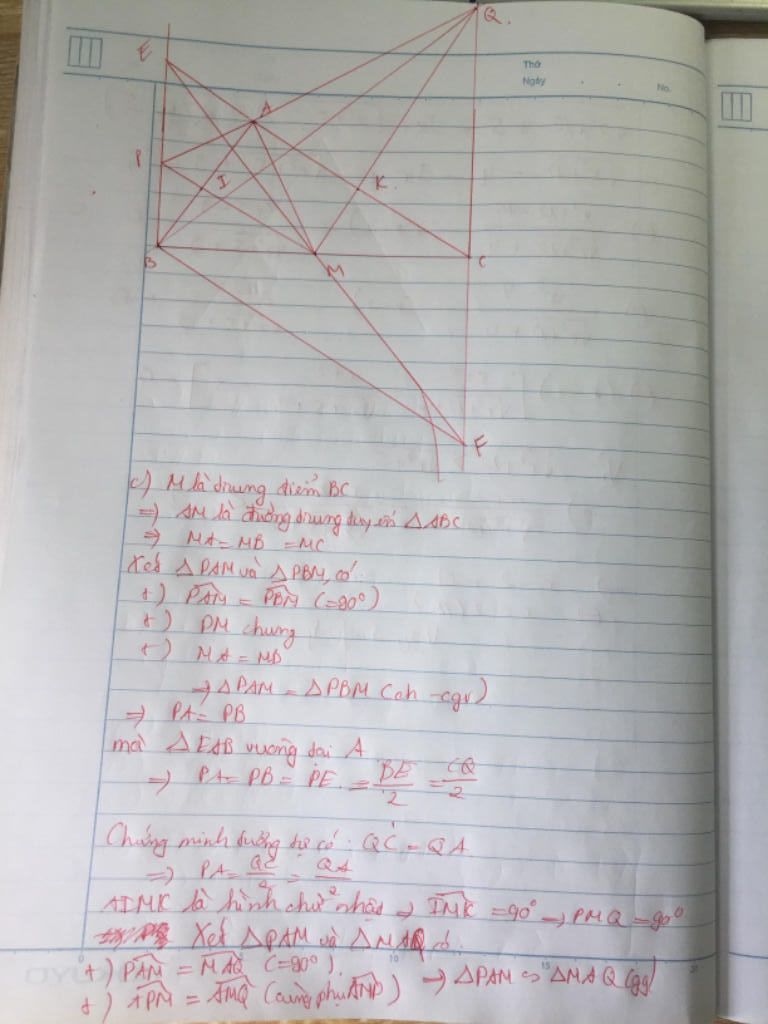 Q.
E
Thứ
Ngày
No.
A
P
I
K.
B
M
C
F
c) M là trung điểm BC
=> AM là đường trung tuyến △ABC
=> MA = MB = MC
Xét △PAM và △PBM, có
+) PAM = PBM (=90°)
+) PM chung
+) MA = MB
=> △PAM = △PBM (ch - cgv)
=> PA = PB
mà △EAB vuông tại A
=> PA = PB = PE = BE/2 = CQ/2
Chứng minh tương tự có: QC = QA
=> PA = QC/2 = QA/2
AIMK là hình chữ nhật => IMK = 90° => PMQ = 90°
Xét △PAM và △MAQ có
+) PAM = MAQ (=90°).
+) APM = AMQ (cùng phụ AMP) => △PAM ∽ △MAQ (gg)
0
10
15